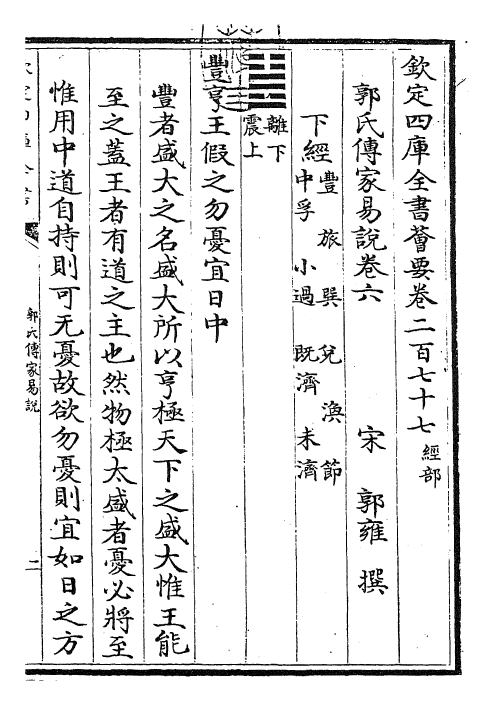 欽定四庫全書薈要卷二百七十七 經部
郭氏傳家易說卷六 宋 郭雍 撰
下經 豐 旅 巽 兌 渙 節
中孚 小過 既濟 未濟
離下
震上
豐亨王假之勿憂宜日中
豐者盛大之名盛大所以亨極天下之盛大惟王能
至之蓋王者有道之主也然物極太盛者憂必將至
惟用中道自持則可无憂故欲勿憂則宜如日之方
郭氏傳家易說
二